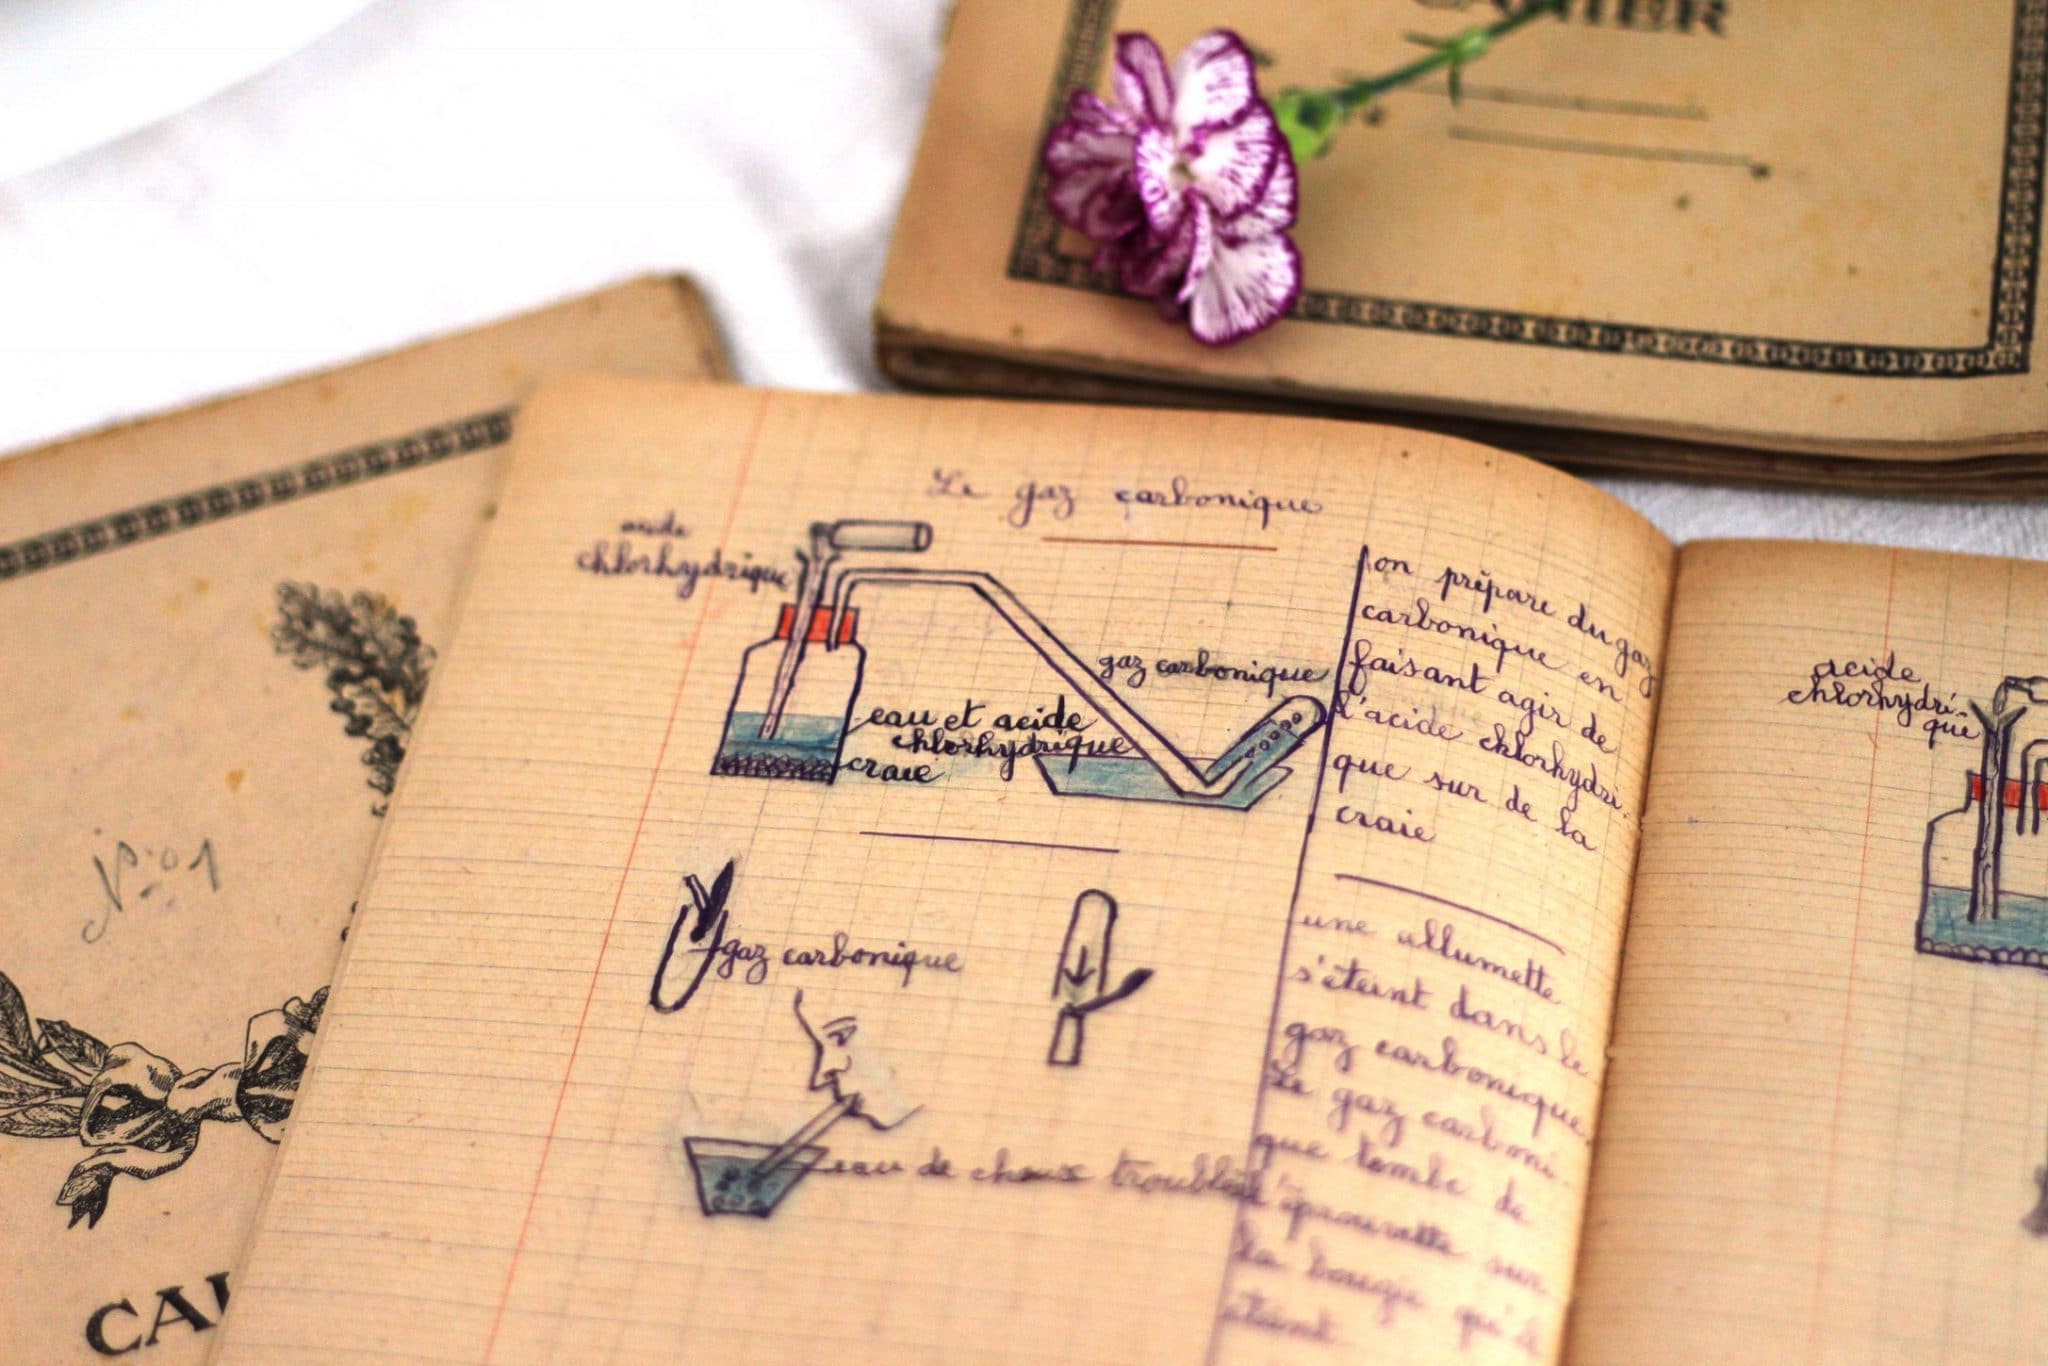 CAHIER
Le gaz carbonique
acide
chlorhydrique
gaz carbonique
eau et acide
chlorhydrique
craie
on prépare du gaz
carbonique en
faisant agir de
l'acide chlorhydri-
que sur de la
craie
gaz carbonique
eau de chaux troublée
une allumette
s'éteint dans le
gaz carbonique.
Le gaz carboni-
que tombe de
l'éprouvette sur
la bougie qu'il
éteint
acide
chlorhydri-
que
N° 1
CAI